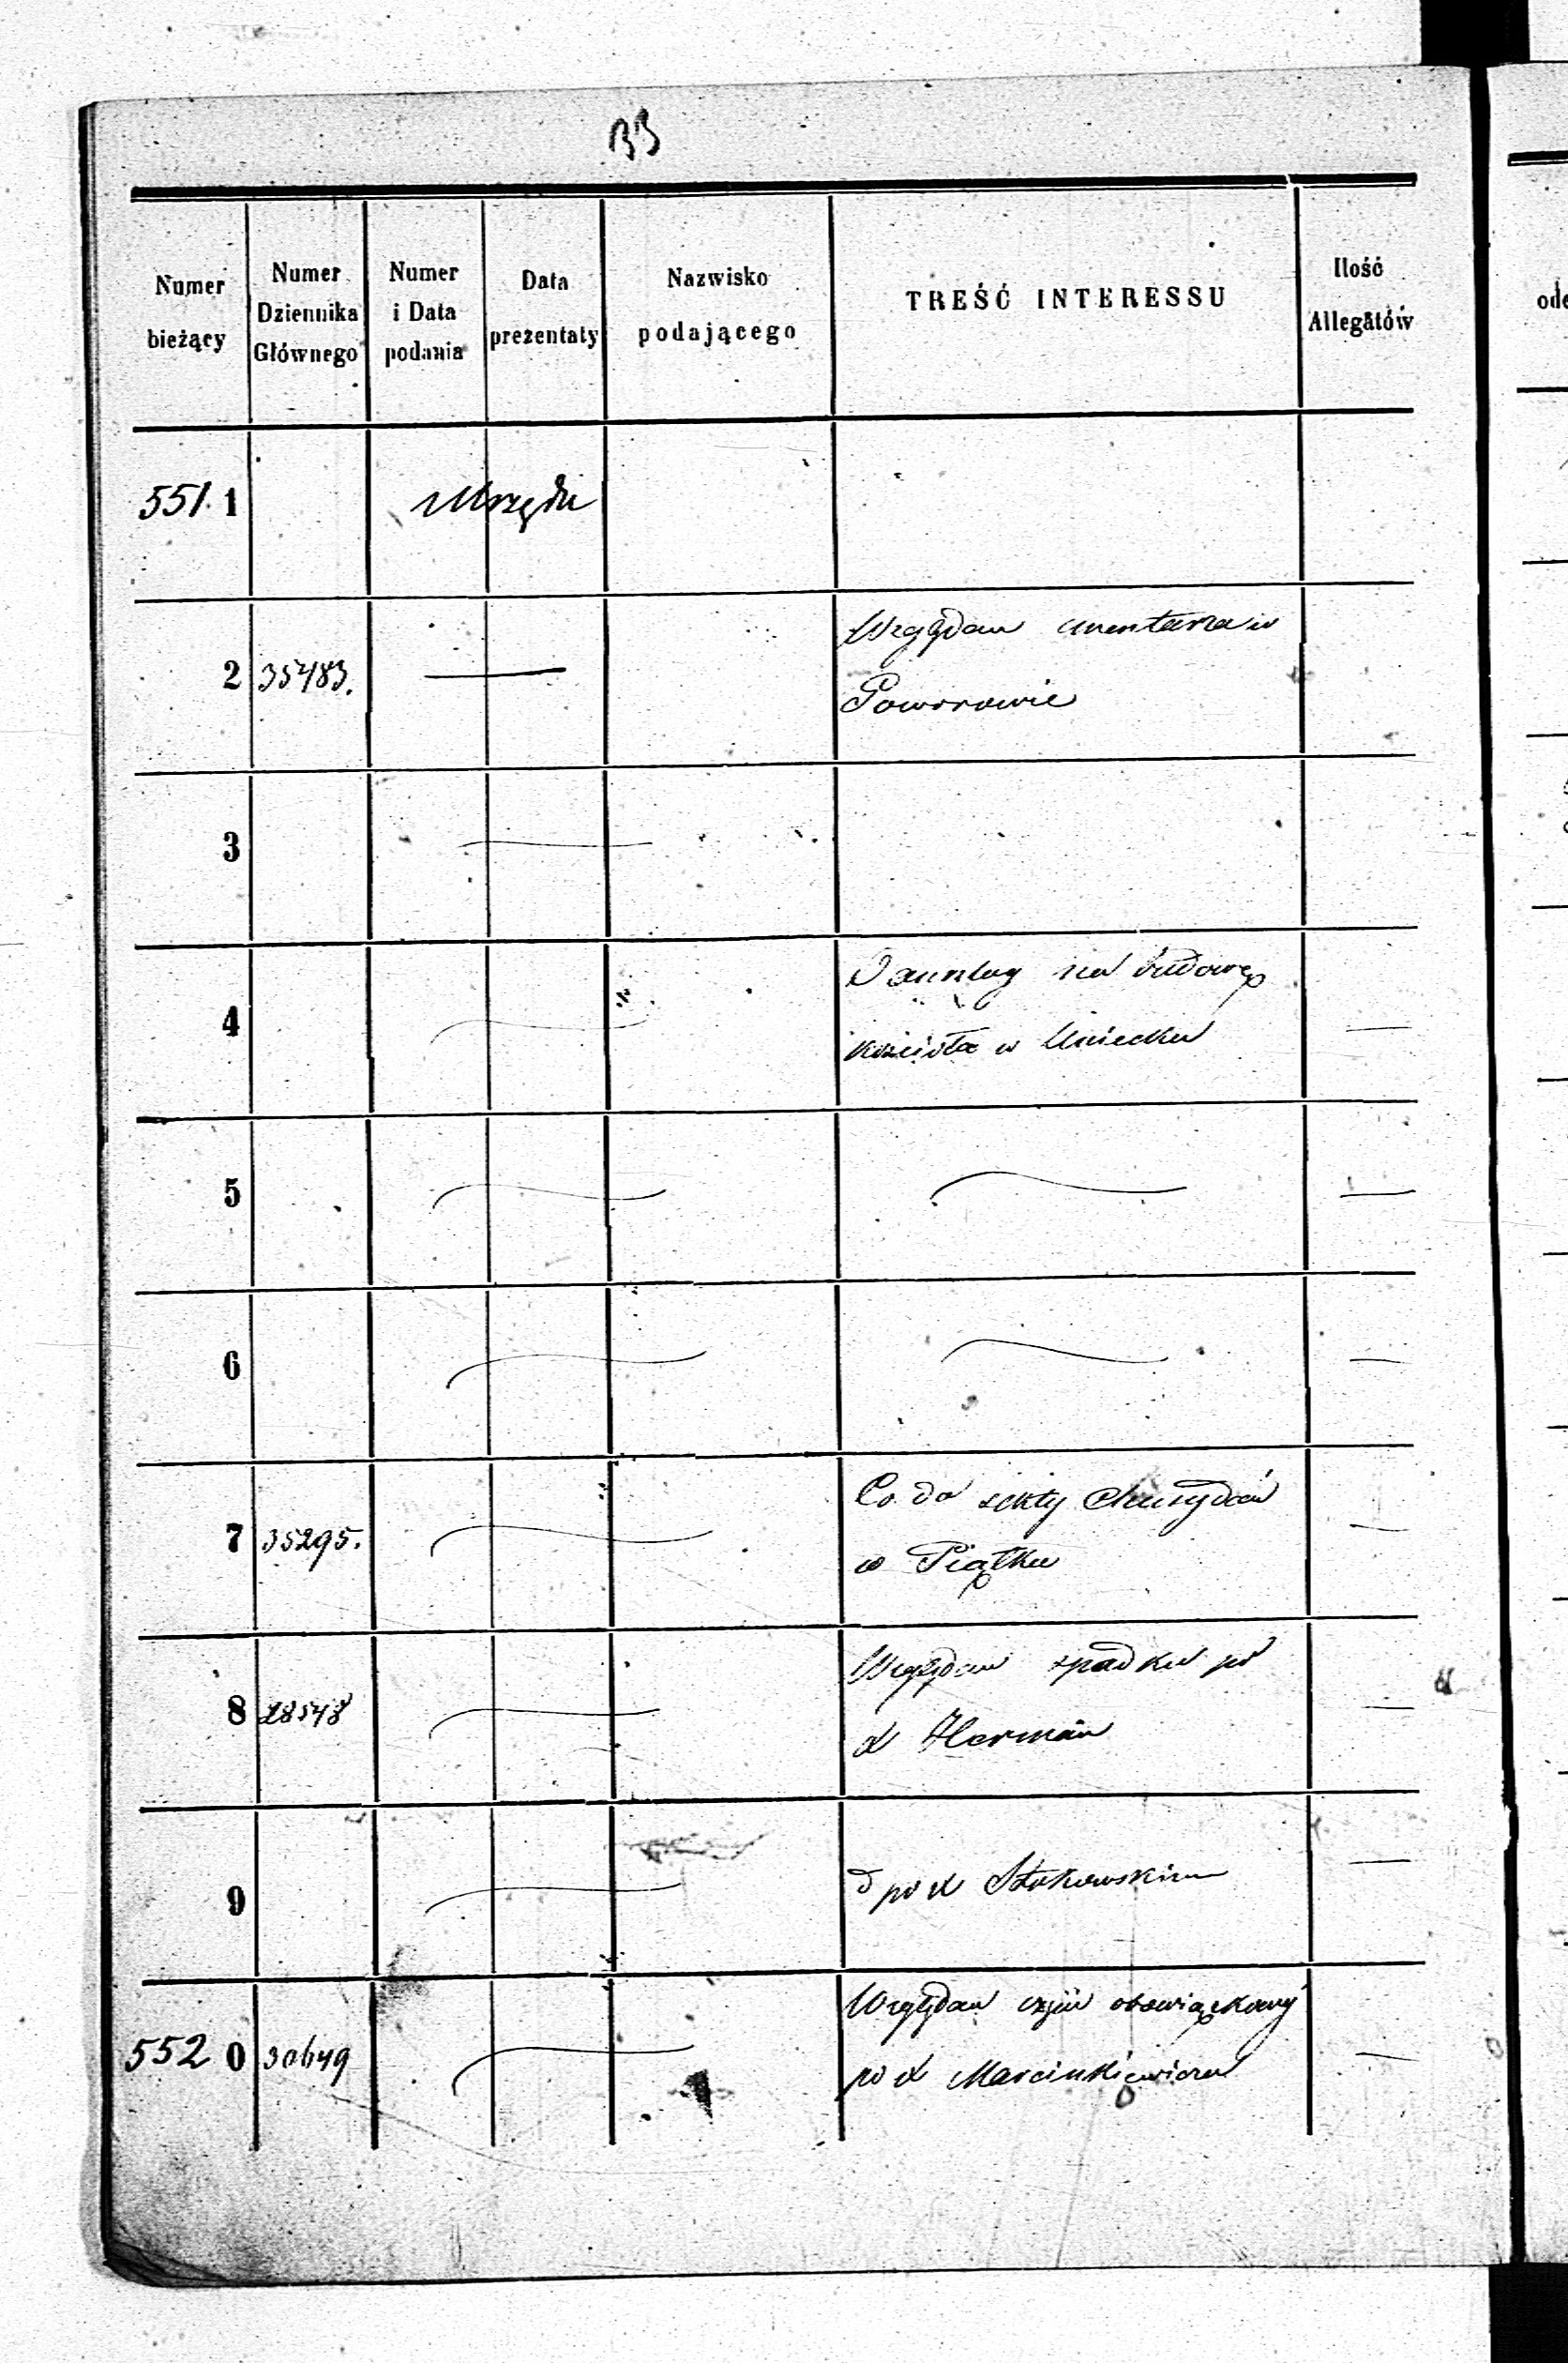 33
Numer bieżący
Numer Dziennika Głównego
Numer i Data podania
Data prezentaty
Nazwisko podającego
TREŚĆ INTERESSU
Ilość Allegatów
551 1 z Urzędu
2 35483. — Względem cmentarza w
Poworowie
3
4 O zasiłek na budowę
kościoła w Uniecku —
5 —
6 —
7 35295. Co do sekty Chusydów —
w Piątku
8 28548 Względem spadku po —
X Herman
9 d po X Stokowskim —
552 0 30649 Względem czyn obowiązkowy —
po X Marcinkiewiczu